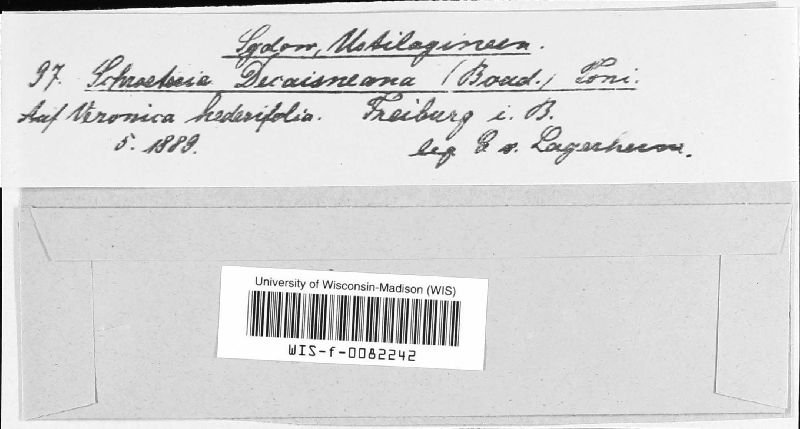 Sydow, Ustilagineen.
97. Schroeteria Decaisneana (Boud.) Toni.
Auf Veronica hederifolia. Freiburg i. B.
5. 1889. leg. G v. Lagerheim.
University of Wisconsin-Madison (WIS)
WIS-f-0082242